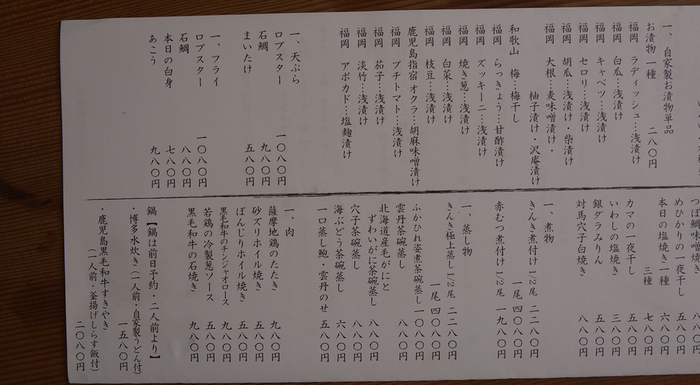 一、自家製お漬物単品
お漬物一種 二八〇円
福岡 ラディッシュ…浅漬け
福岡 白瓜…浅漬け
福岡 キャベツ…浅漬け
福岡 セロリ…浅漬け
福岡 胡瓜…浅漬け・柴漬け
福岡 大根…麦味噌漬け・
柚子漬け・沢庵漬け
和歌山 梅…梅干し
福岡 らっきょう…甘酢漬け
福岡 ズッキーニ…浅漬け
福岡 焼き葱…浅漬け
福岡 白菜…浅漬け
福岡 枝豆…浅漬け
鹿児島指宿 オクラ…胡麻味噌漬け
福岡 プチトマト…浅漬け
福岡 茄子…浅漬け
福岡 淡竹…浅漬け
福岡 アボカド…塩麹漬け
一、天ぷら
ロブスター 一〇八〇円
石鯛 九八〇円
まいたけ 五八〇円
一、フライ
ロブスター 一〇八〇円
石鯛 八八〇円
本日の白身 七八〇円
あこう 九八〇円
つぼ鯛味噌焼き
めひかりの一夜干し 五八〇円
本日の塩焼き一種 六八〇円
三種 七八〇円
カマの一夜干し
いわしの塩焼き 五八〇円
銀ダラみりん 八八〇円
対馬穴子白焼き 八八〇円
一、煮物
きんき煮付け 1/2尾 二二八〇円
一尾 四〇八〇円
赤むつ煮付け 1/2尾 一九八〇円
一、蒸し物
きんき極上蒸し 1/2尾 二二八〇円
一尾 四〇八〇円
ふかひれ姿煮茶碗蒸し 一〇八〇円
雲丹茶碗蒸し 八八〇円
北海道産毛がにと
ずわいがに茶碗蒸し 八八〇円
穴子茶碗蒸し 八八〇円
海ぶどう茶碗蒸し 六八〇円
一口蒸し鮑・雲丹のせ 五八〇円
一、肉
薩摩地鶏のたたき 九八〇円
砂ズリホイル焼き 五八〇円
ぼんじりホイル焼き 五八〇円
黒毛和牛のチンジャオロース 九八〇円
若鶏の冷製葱ソース 五八〇円
黒毛和牛の石焼き 九八〇円
鍋【鍋は前日予約・二人前より】
・博多水炊き(一人前・自家製うどん付)
一五八〇円
・鹿児島黒毛和牛すきやき
(一人前・釜揚げしらす飯付)
二〇八〇円